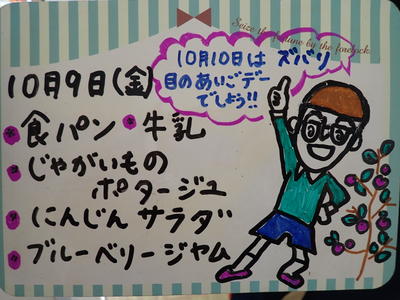 Seize the fortune by the forelock
10月10日は ズバリ
目のあいごデー
でしょう!!
10月9日(金)
食パン 牛乳
じゃがいもの
ポタージュ
にんじん サラダ
ブルーベリージャム